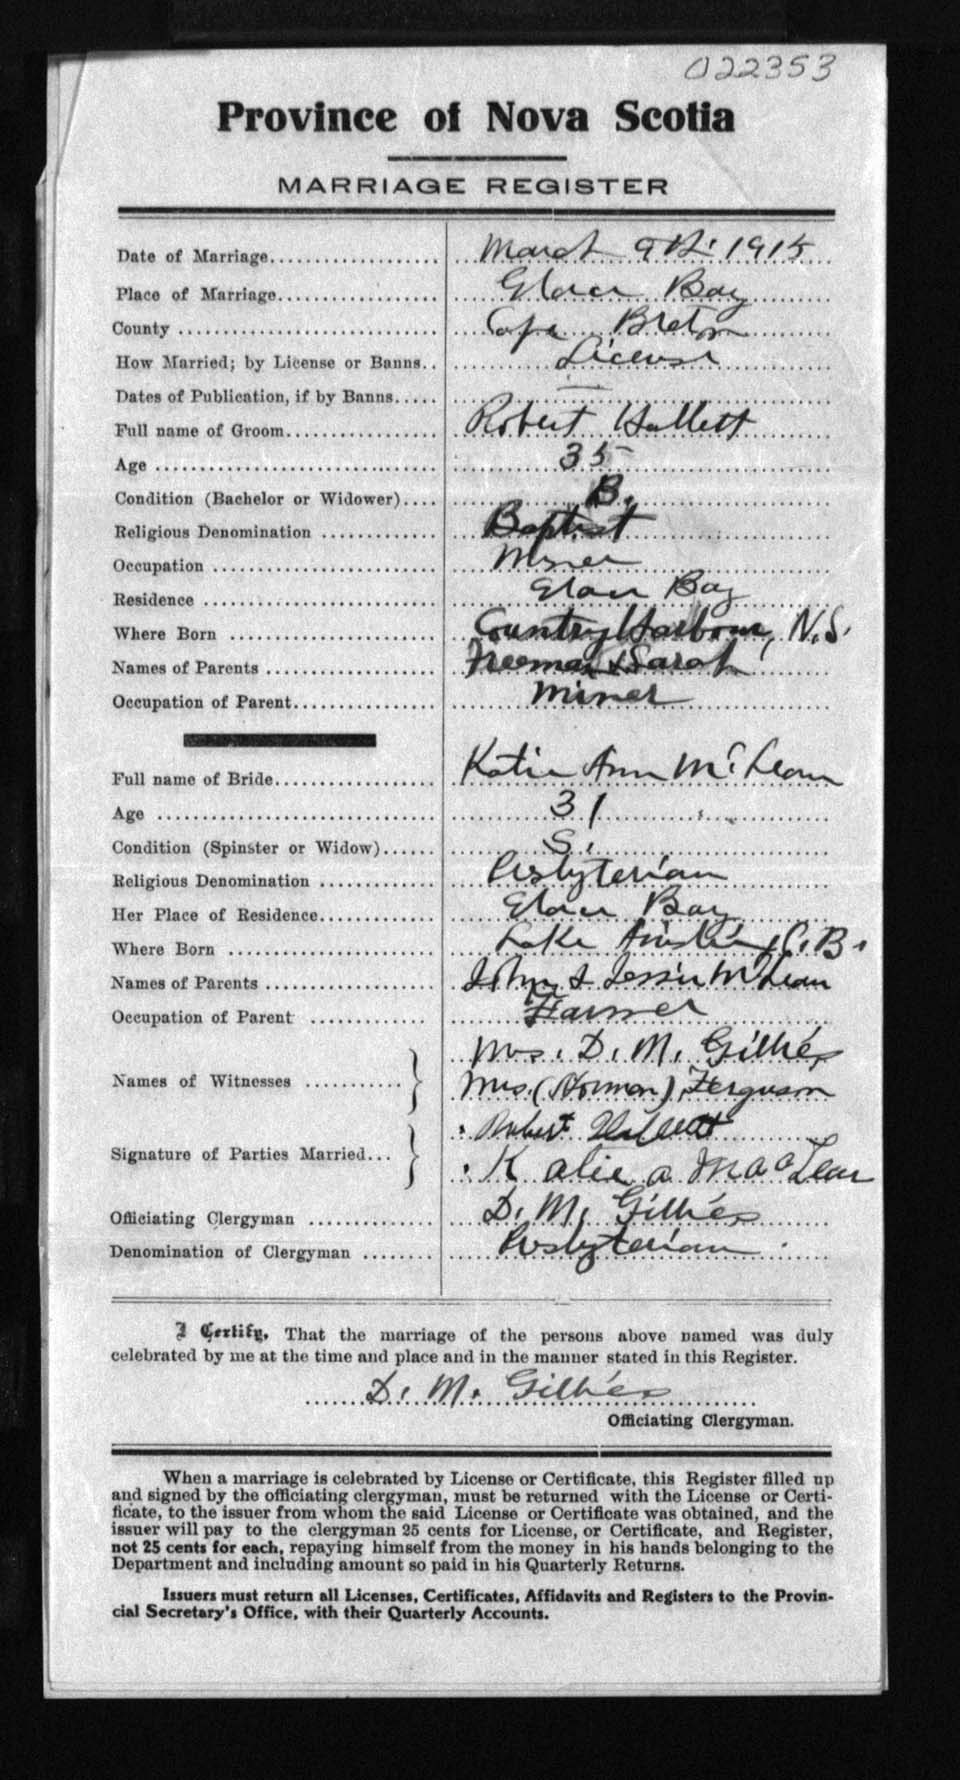 022353
Province of Nova Scotia
MARRIAGE REGISTER
Date of Marriage................... March 9th 1915
Place of Marriage.................. Glace Bay
County ............................ Cape Breton
How Married; by License or Banns.. License
Dates of Publication, if by Banns..... —
Full name of Groom................. Robert Hallett
Age ............................... 35
Condition (Bachelor or Widower).... B.
Religious Denomination ............ Baptist
Occupation ........................ Miner
Residence ......................... Glace Bay
Where Born ........................ Country Harbour, N.S.
Names of Parents .................. Freeman & Sarah
Occupation of Parent................ Miner
Full name of Bride.................. Katie Ann McLean
Age ............................... 31
Condition (Spinster or Widow)...... S.
Religious Denomination ............ Presbyterian
Her Place of Residence............. Glace Bay
Where Born ........................ Lake Ainslie, C.B.
Names of Parents .................. John & Jessie McLean
Occupation of Parent .............. Farmer
Mrs. D. M. Gillies
Names of Witnesses ........... Mrs. (Norman) Ferguson
Robert Hallett
Signature of Parties Married...
Katie a MacLean
Officiating Clergyman ............. D. M. Gillies
Denomination of Clergyman ........ Presbyterian
I Certify, That the marriage of the persons above named was duly
celebrated by me at the time and place and in the manner stated in this Register.
D. M. Gillies
Officiating Clergyman.
When a marriage is celebrated by License or Certificate, this Register filled up
and signed by the officiating clergyman, must be returned with the License or Certi-
ficate, to the issuer from whom the said License or Certificate was obtained, and the
issuer will pay to the clergyman 25 cents for License, or Certificate, and Register,
not 25 cents for each, repaying himself from the money in his hands belonging to the
Department and including amount so paid in his Quarterly Returns.
Issuers must return all Licenses, Certificates, Affidavits and Registers to the Provin-
cial Secretary's Office, with their Quarterly Accounts.